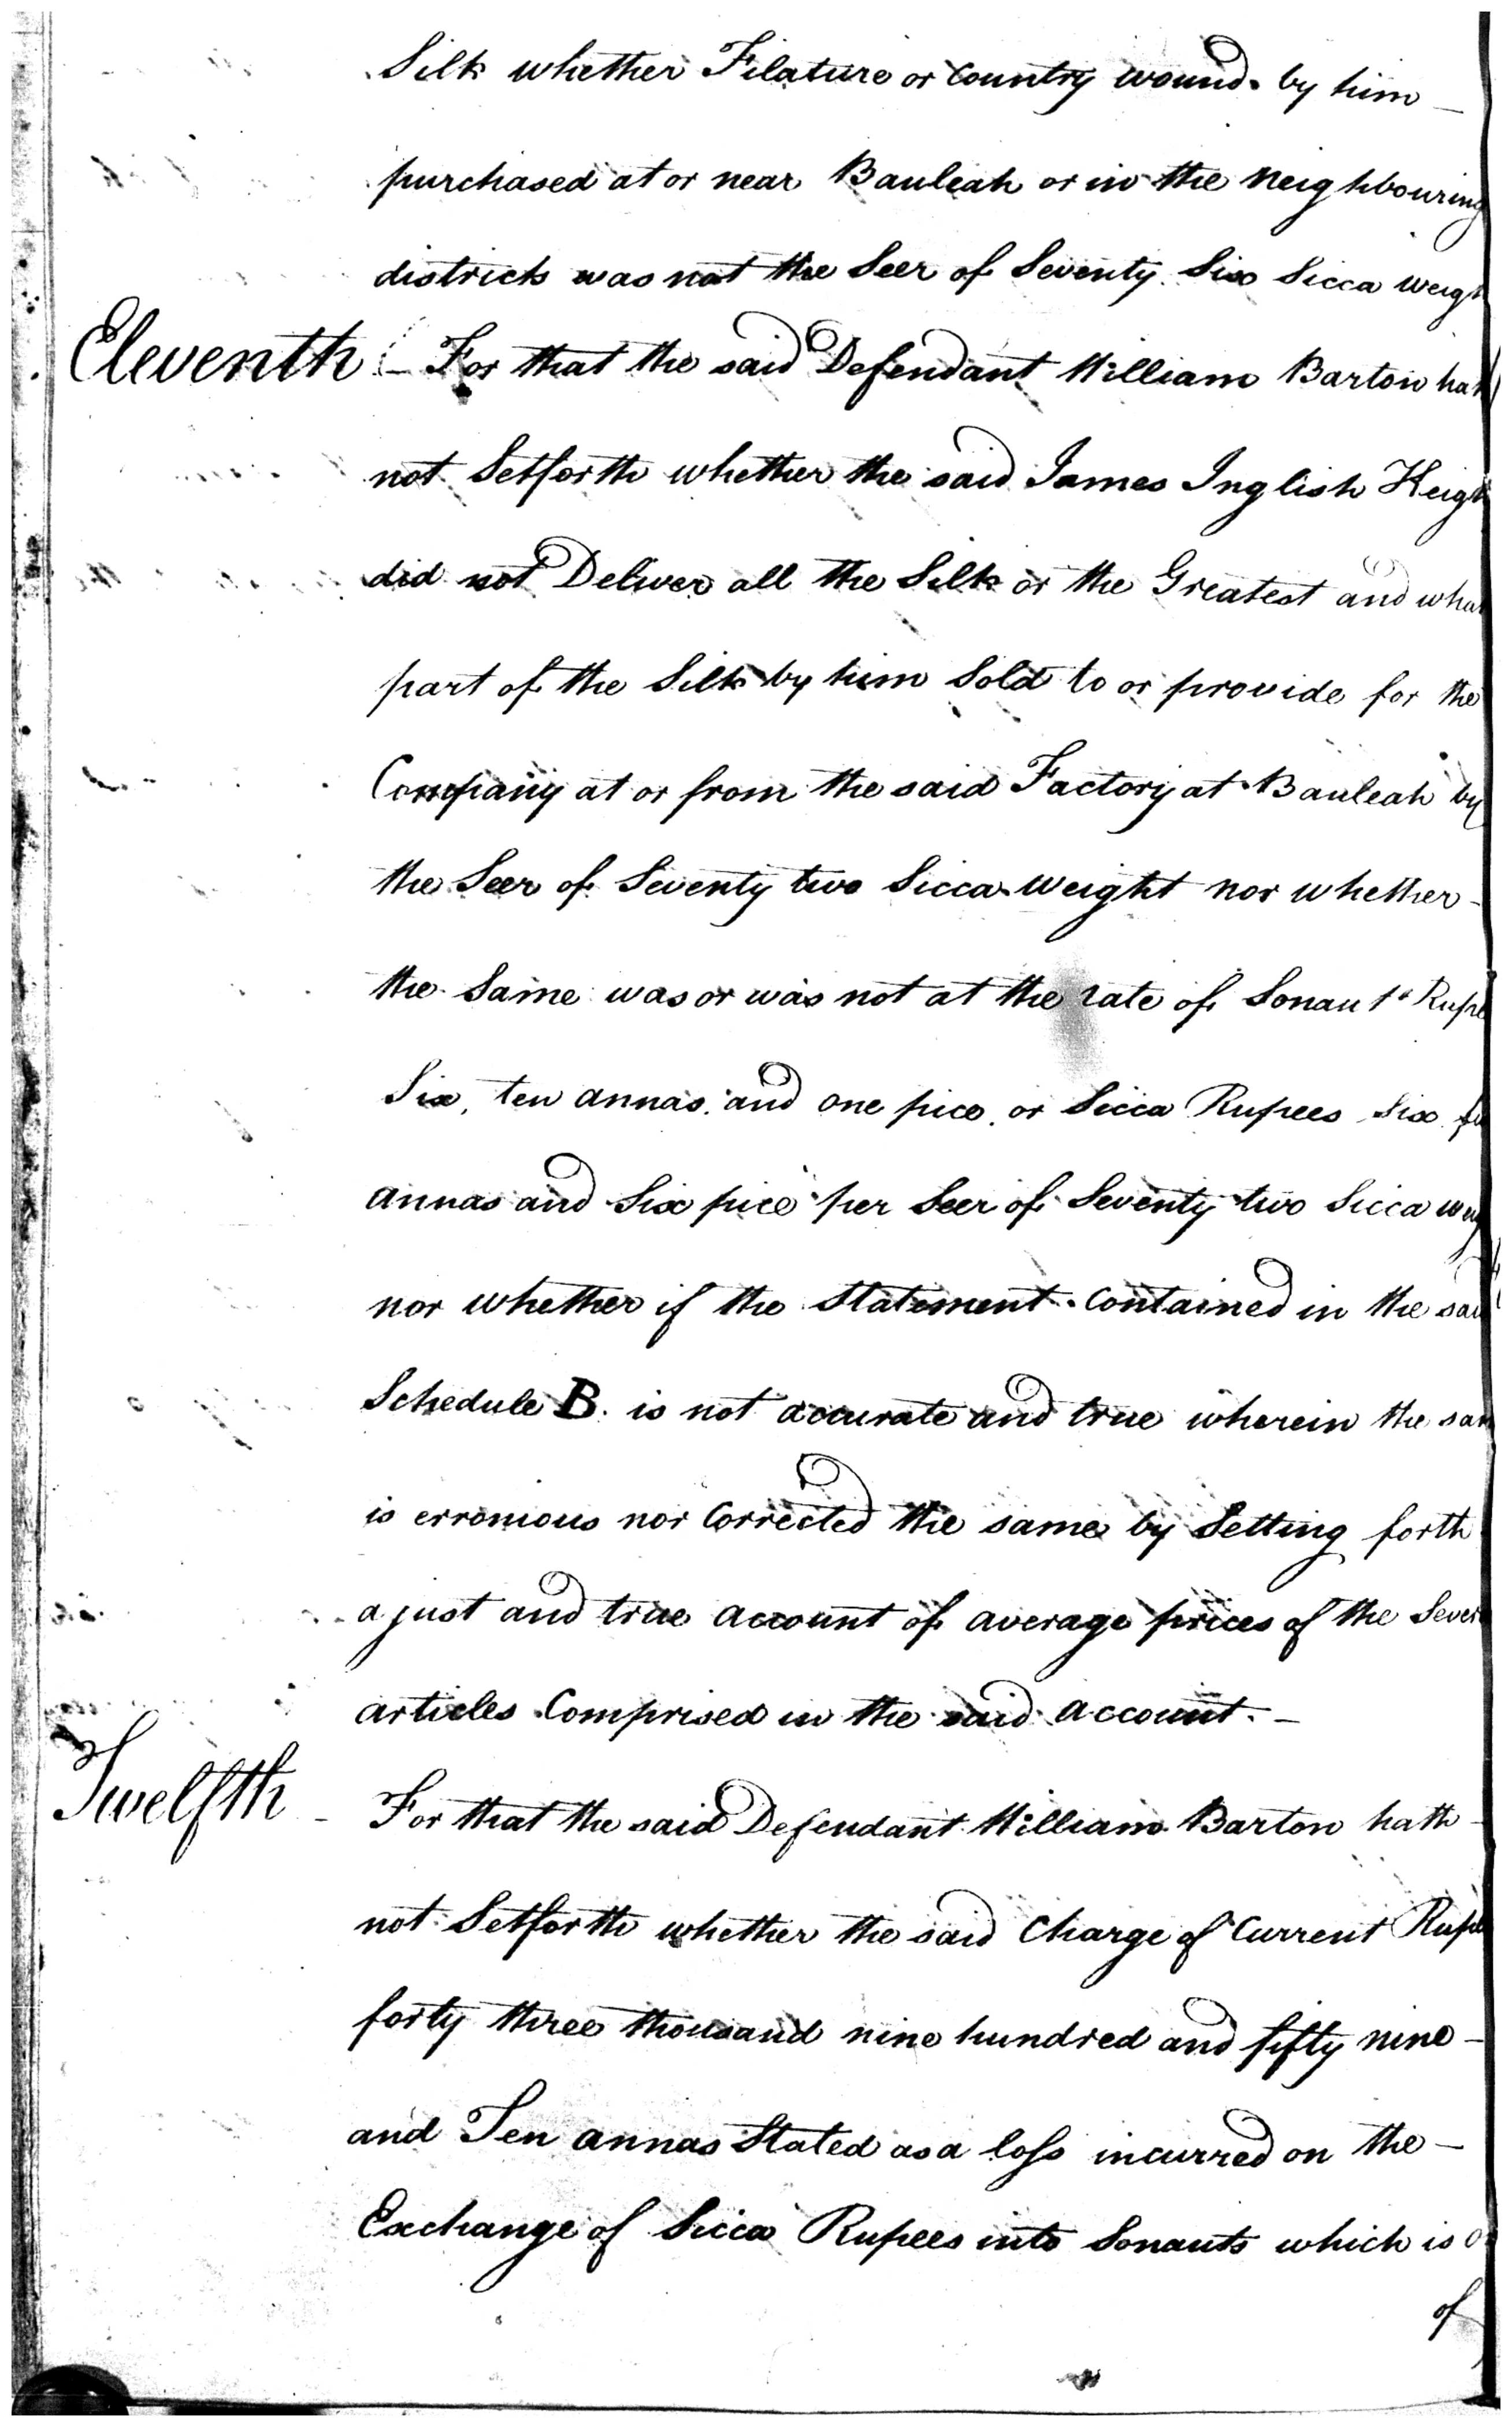 Silk whether Filature or Country wound by him
purchased at or near Bauleah or in the Neighbouring
districts was not the Seer of Seventy Six Sicca weigh
Eleventh - For that the said Defendant William Barton hath
not Setforth whether the said James Inglish Keigh
did not Deliver all the Silk or the Greatest and what
part of the Silk by him Sold to or provide for the
Company at or from the said Factory at Bauleah by
the Seer of Seventy two Sicca Weight nor whether -
the Same was or was not at the rate of Sonaut Rupe
Six, ten annas and one pice or Sicca Rupees Six
annas and Six pice per Seer of Seventy two Sicca
nor whether if the Statement Contained in the sai
Schedule B. is not accurate and true wherein the sam
is erronious nor Corrected the same by Setting forth
a just and true account of average prices of the Sever
articles Comprised in the said account. -
Twelfth - For that the said Defendant William Barton hath -
not Setforth whether the said Charge of Current Rupe
forty three thousand nine hundred and fifty nine -
and Ten annas Stated as a loss incurred on the -
Exchange of Sicca Rupees into Sonauts which is
of